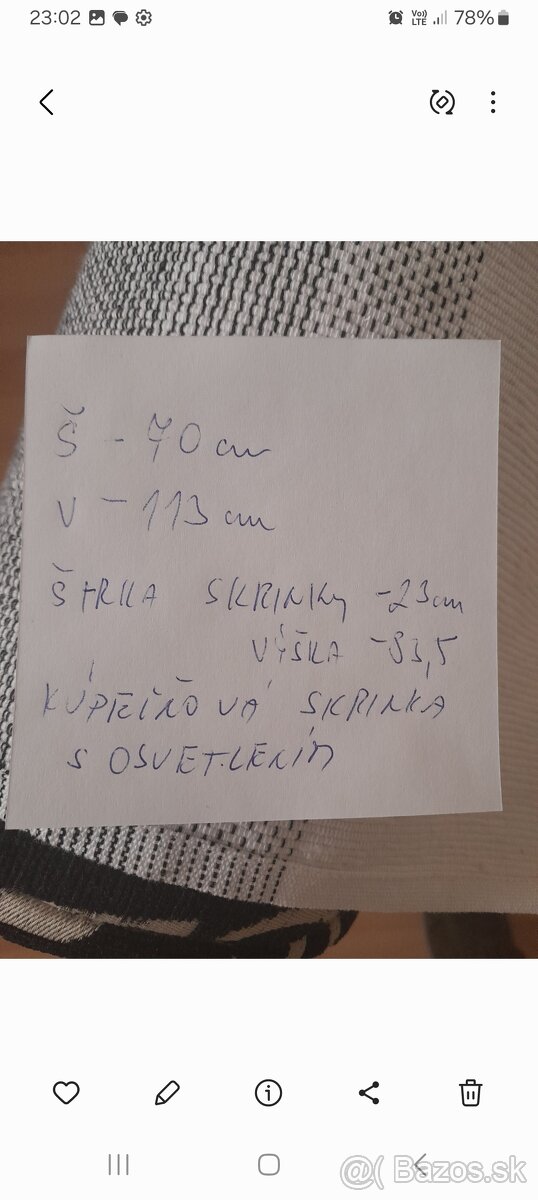 23:02
Vo)) LTE
78%
Š - 70 cm
V - 113 cm
ŠÍRKA SKRINKY -23cm
VÝŠKA -83,5
KÚPEĽŇOVÁ SKRINKA
S OSVETLENÍM
@( Bazos.sk